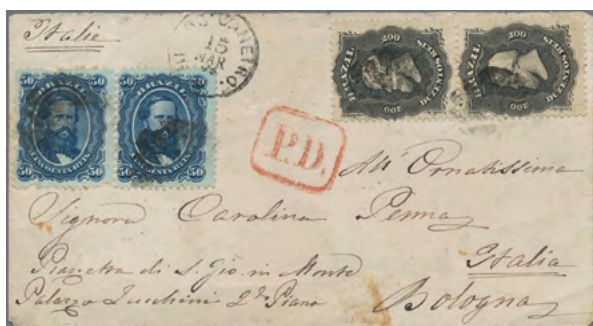 Italie
RIO JANEIRO
15
MAR
50 BRAZIL 50
50 CINCOENTA REIS 50
50 BRAZIL 50
50 CINCOENTA REIS 50
200
BRAZIL
DUZENTOS REIS
200
200
BRAZIL
DUZENTOS REIS
200
P.D.
All' Ornatissima
Signora Carolina Penna
Italia
Pianetta di S. Gio in Monte
Palazzo Zucchini 2do Piano
Bologna